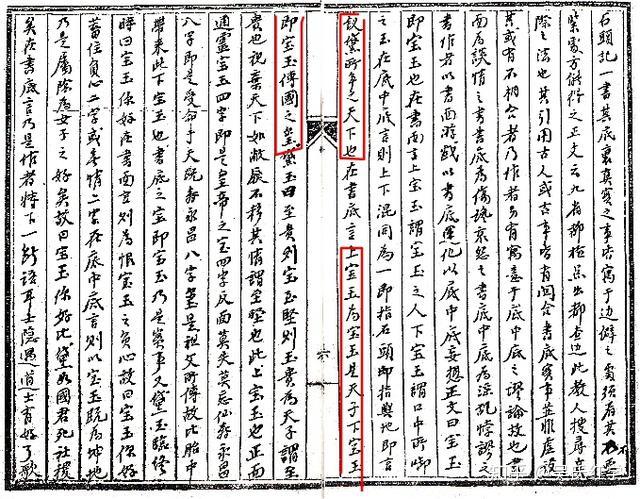 石頭記一書其底裏真實之事皆寓于边僻之處須看其不要
紧處方能得之正文云凡者都出都查边此教人搜尋
除之法也其引用古人或古事皆有闗合書底實事並非虛設
其或有不相合者乃作者另有寓意于底中底之謬論故也書
面為談情之書書底為傷讒哀怨之書底中底為淫乱悖謬之
書作者以書面游戲以書底運化以底中底妄想正文曰宝玉
即宝玉也在書面言上宝玉謂宝玉之人下宝玉謂口中所啣
之玉在底中底言則上下混同為一即指石頭即指輿地即言
釵黛所争之天下也在書底言上宝玉為宝玉是天子下宝玉
六
即宝玉傳國之皇黛玉曰至貴則宝玉堅則玉貴為天子謂至
貴也視棄天下如敝屣不移其情謂至堅也此上宝玉也正面
通靈宝玉四字即是皇帝之宝四字反面莫失莫忘仙壽永昌
八字即是受命于天既壽永昌八字皇是祖父所傳故此胎中
帶來此下宝玉也書底之宝即宝玉乃是實事又黛玉臨終
時曰宝玉你好在書面言則為恨宝玉之負心故曰宝玉你好
蓄住負心二字或情二字在底中底言則以宝玉既為坤地
乃是屬陰為女子之好矣故曰宝玉你好比黛如國君死社稷
矣在書底言乃是作者特下一語耳士隐遇道士有好了歌
知乎